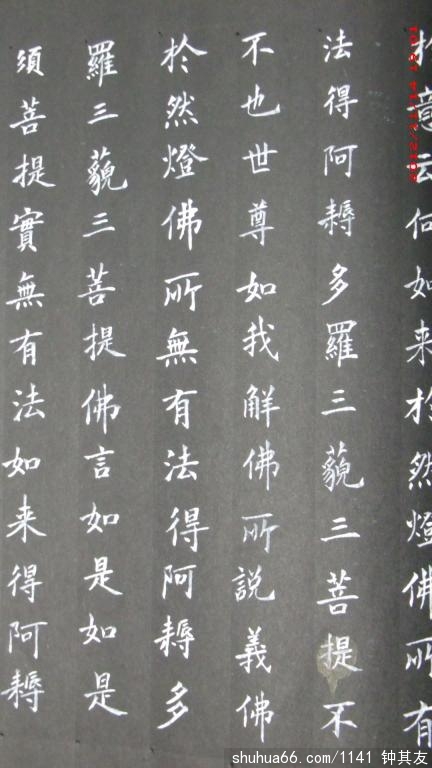 於意云何如来於然燈佛所有
法得阿耨多羅三藐三菩提不
不也世尊如我解佛所説義佛
於然燈佛所無有法得阿耨多
羅三藐三菩提佛言如是如是
須菩提實無有法如来得阿耨
shuhua66.com/1141 钟其友